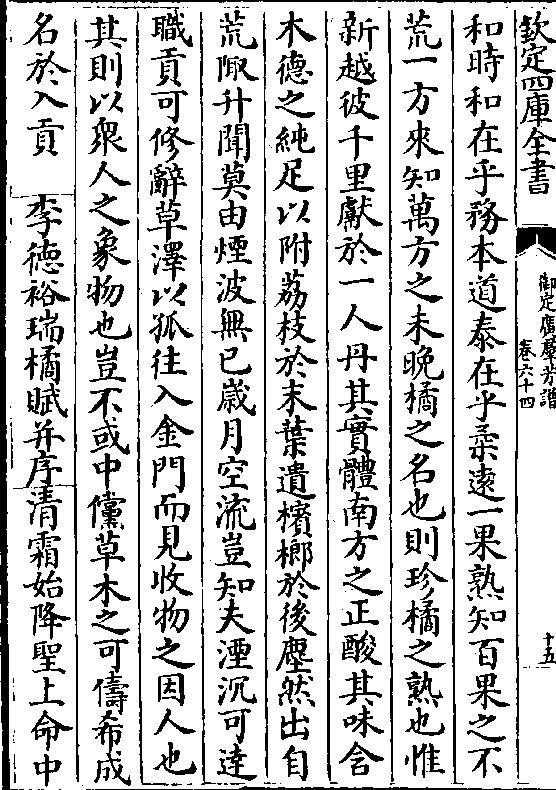 欽定四庫全書
御定廣羣芳譜
卷六十四
十五
和時和在乎務本道泰在乎柔遠一果熟知百果之不
荒一方來知萬方之未晚橘之名也則珍橘之熟也惟
新越彼千里獻於一人丹其實體南方之正酸其味含
木德之純足以附荔枝於末葉遺檳榔於後塵然出自
荒陬升聞莫由煙波無已歲月空流豈知夫湮沉可達
職貢可修辭草澤以孤往入金門而見收物之因人也
其則以衆人之象物也豈不或中儻草木之可儔希成
名於入貢 李德裕瑞橘賦并序清霜始降聖上命中